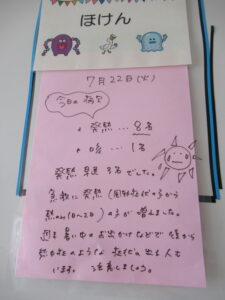 ほけん
7月22日(火)
今日の病欠
・発熱…8名
・咳…1名
発熱早退3名でした。
急激に発熱(周りの症状の子から
の子が増えました。
週末暑い中のお出かけなどで
のような症状の出る人も
います。注意しましょう。